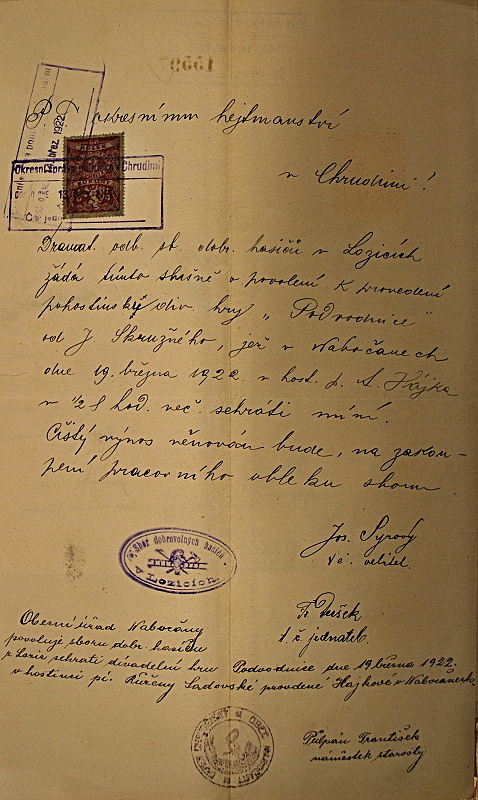 1559
P. T. okresnímu hejtmanství
v Chrudimi!
březn 1922
Okresní správa Chrudimi
KOLEK
Dramat. odb. sb. dobr. hasičů v Lozicích
žádá tímto slušně o povolení k provedení
pohostinsky div. hry „Podvodnice"
od J. Skružného, jež v Nabočanech
dne 19. března 1922 v host. p. A. Hájka
v ½ 8 hod. več. sehráti míní.
Čistý výnos věnován bude, na zakou-
pení pracovního obleku sboru
Jos. Syrový
t. č. velitel.
Sbor dobrovolných hasičů
v Lozicích.
Fr. Dušek
t. č. jednatel.
Obecní úřad Nabočany
povoluje sboru dobr. hasičů
z Lozic sehráti divadelní hru Podvodnice dne 19 března 1922.
v hostinci pí. Růženy Sadovské provdané Hájkové v Nabočanech.
Půlpán František
náměstek starosty